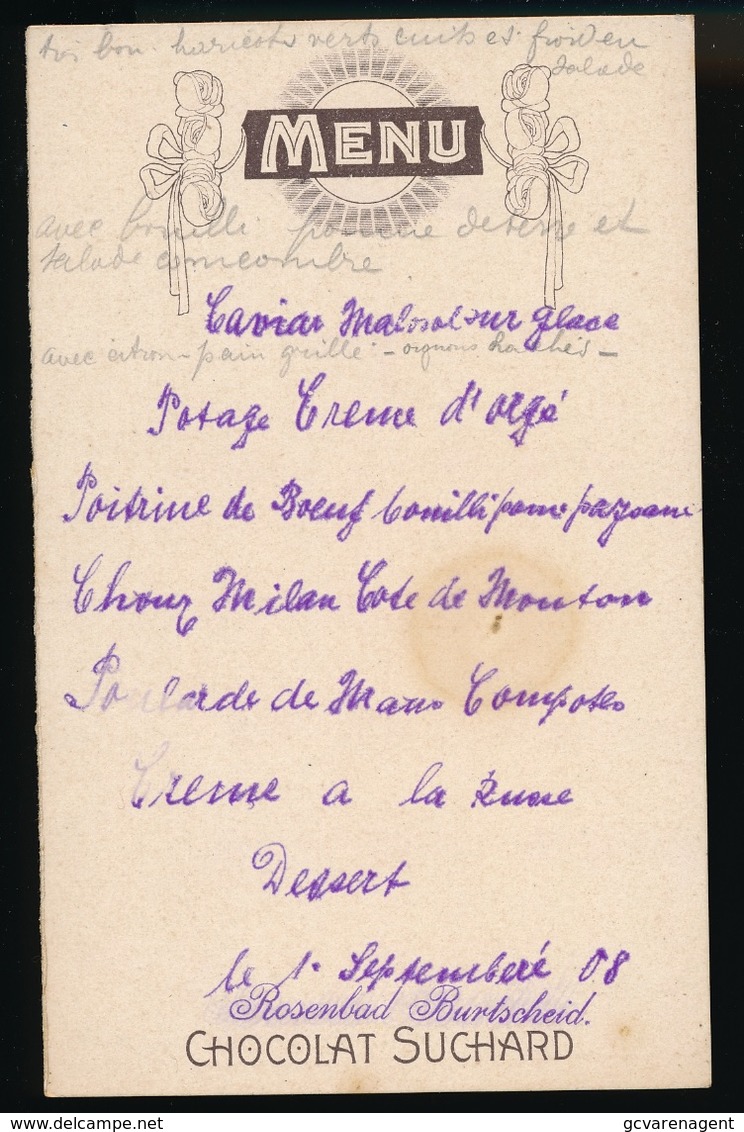 très bon haricots verts cuits et froid en
salade
MENU
avec bouilli pomme de terre et
salade concombre
Caviar Malosol sur glace
avec citron - pain grillé - oignons hachés -
Potage Creme d'orgé
Poitrine de Boeuf bouilli pome paysane
Choux Milan Cote de Mouton
Poularde de Mans Compotes
Creme a la Russe
Dessert
le 1. Septemberé 08
Rosenbad Burtscheid.
CHOCOLAT SUCHARD
delcampe.net
gcvarenagent